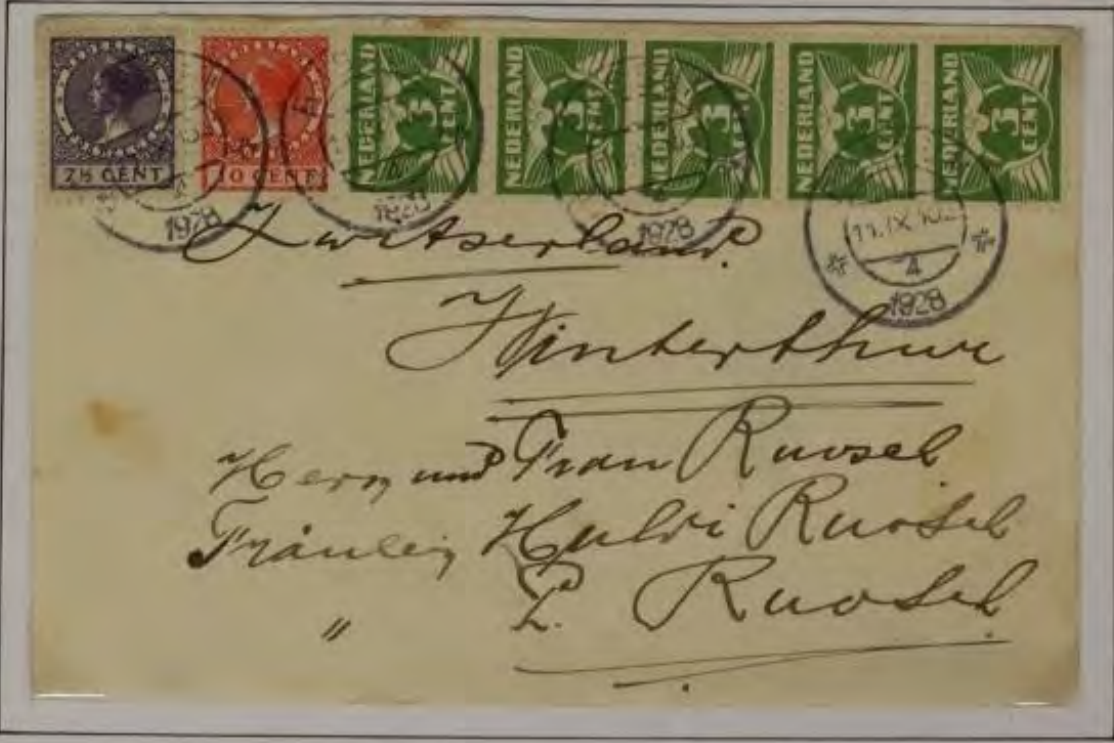 7½ CENT
10 CENT
NEDERLAND 3 CENT
NEDERLAND 3 CENT
NEDERLAND 3 CENT
NEDERLAND 3 CENT
NEDERLAND 3 CENT
1928
1928
1928
11.IX 10.
4
1928
Zwitserland.
Winterthur
Herrn und Frau Ruosch
Fräulein Huldi Ruosch
" L. Ruosch.